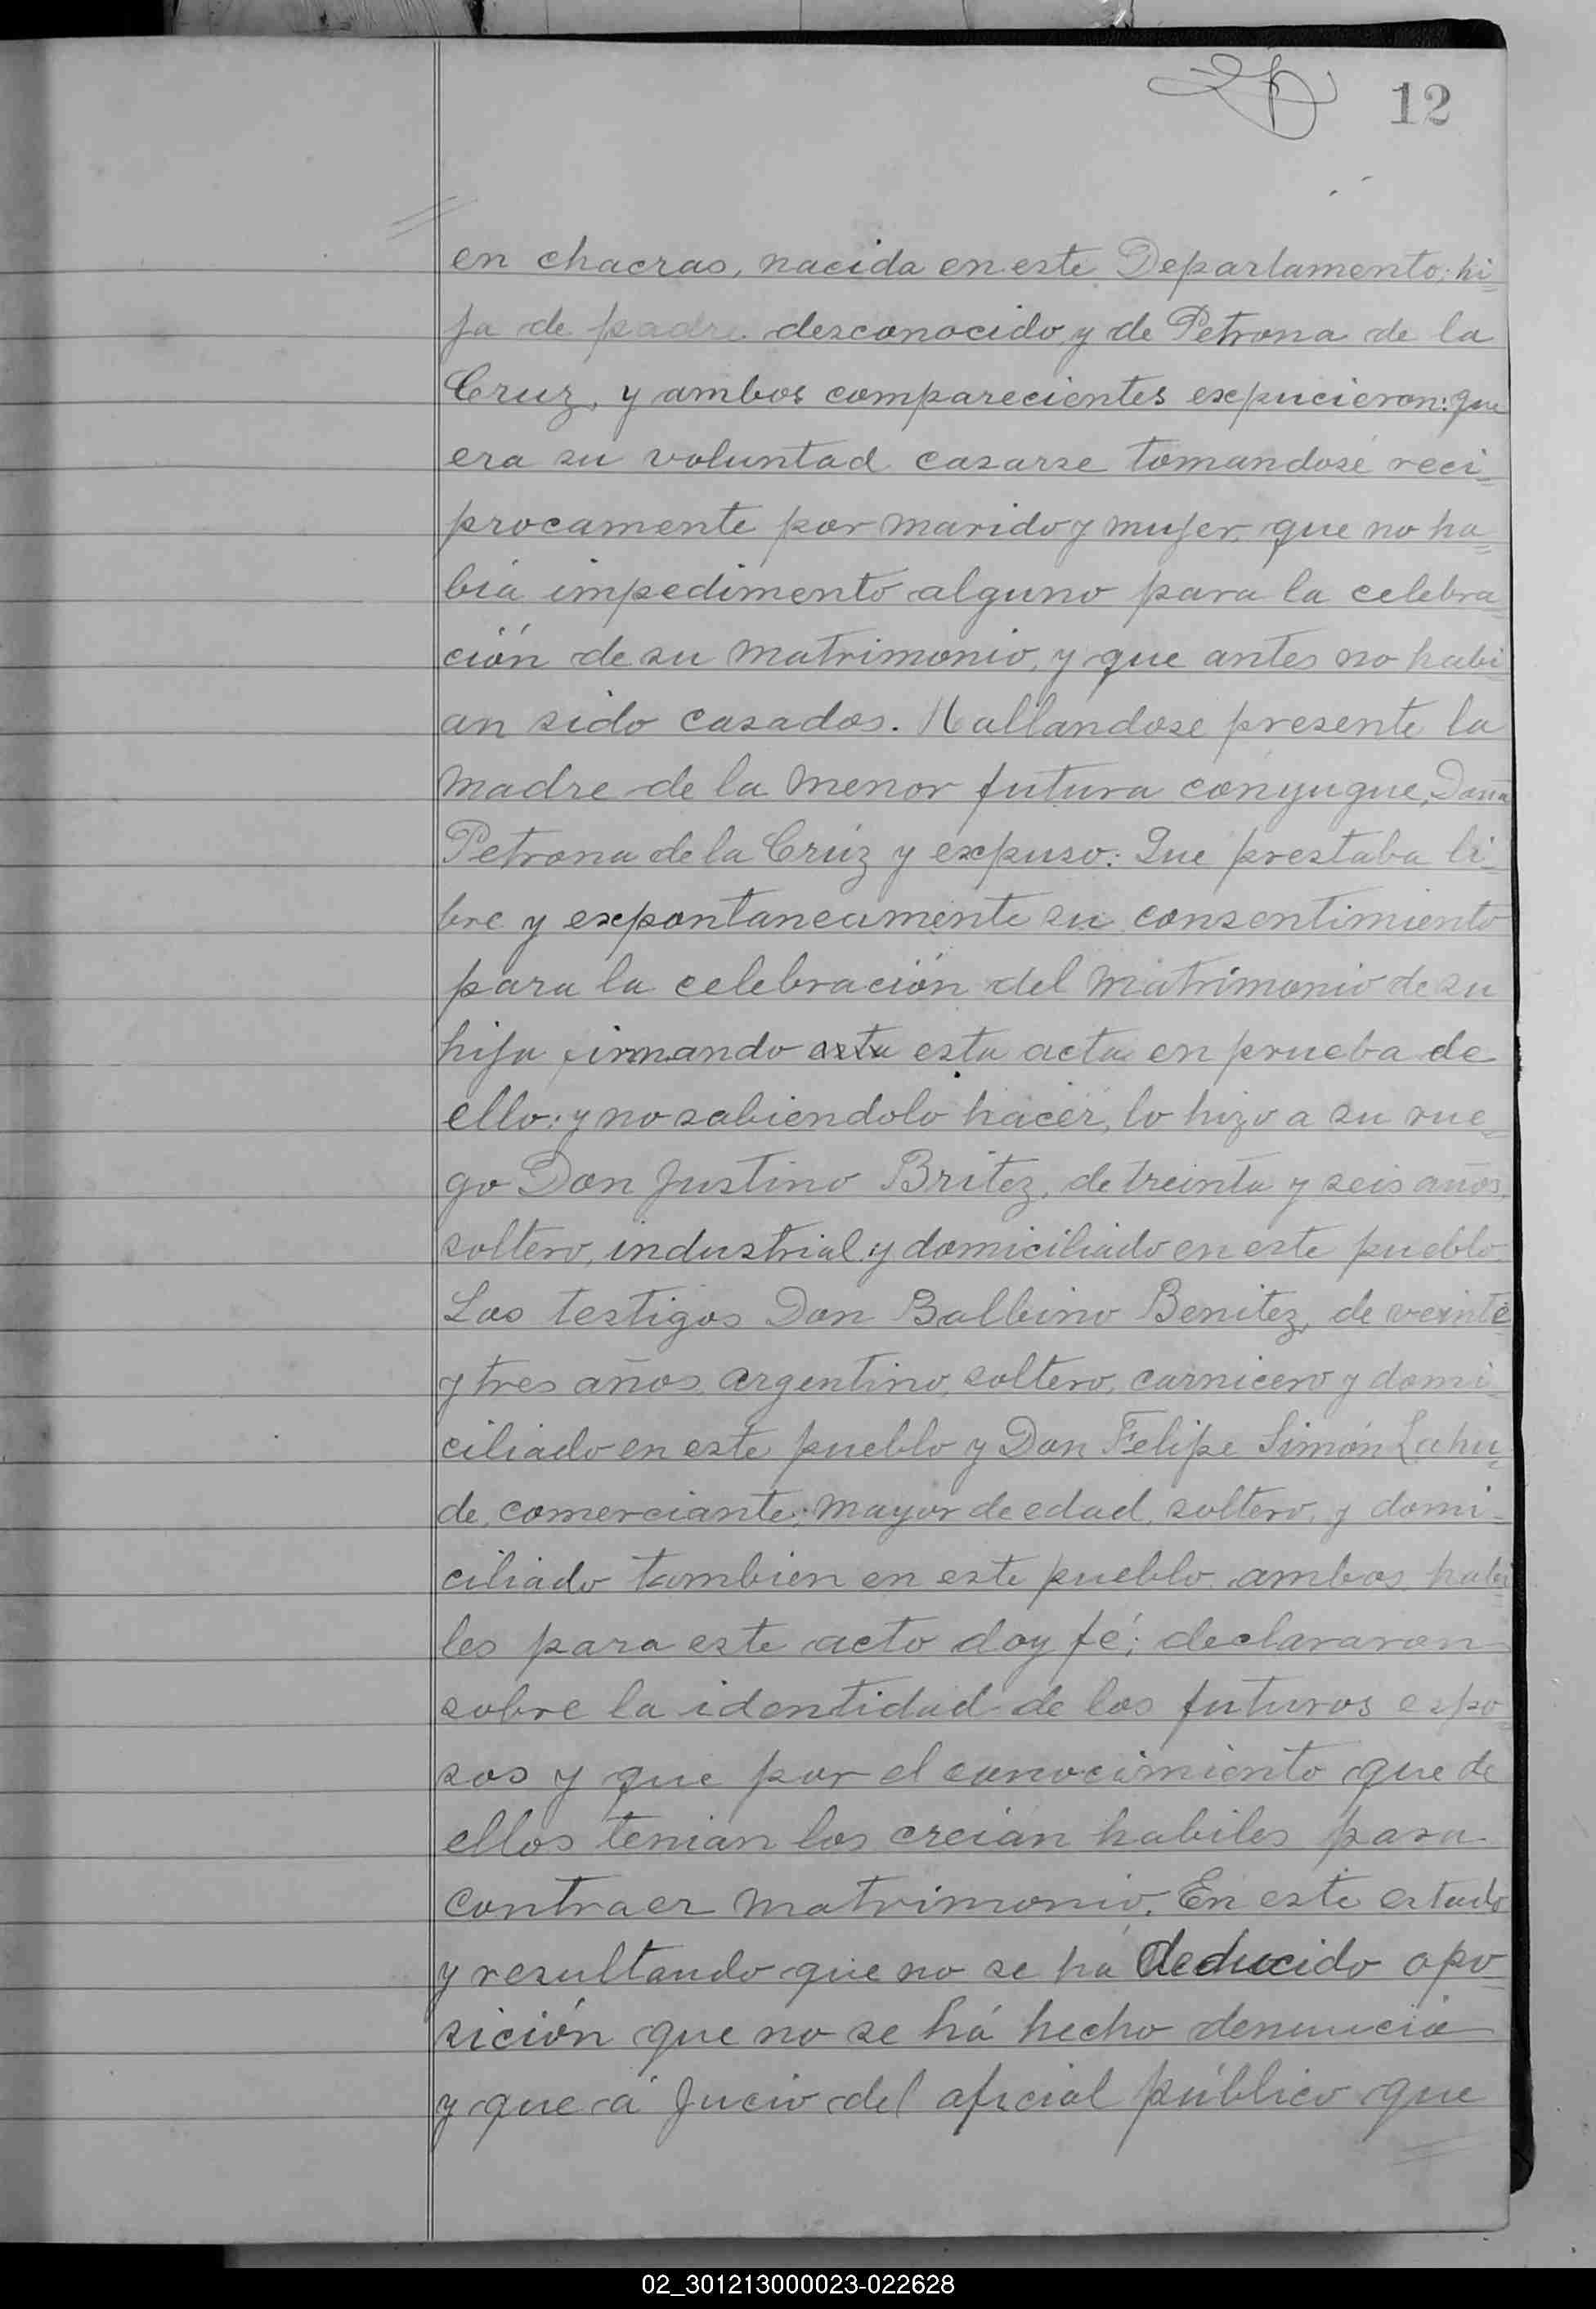 12
en chacras, nacida en este Departamento; hi=
ja de padre desconocido y de Petrona de la
Cruz, y ambos comparecientes expucieron: que
era su voluntad casarse tomandosé reci=
procamente por marido y mujer, que no ha=
bía impedimento alguno para la celebra=
ción de su matrimonio, y que antes no habi=
an sido casados. Hallandose presente la
madre de la menor futura conyugue, Doña
Petrona de la Crúz y expuso: Que prestaba li=
bre y expontaneamente su consentimiento
para la celebración del matrimonio de su
hija firmando esta esta acta en prueba de
ello: y no sabiendolo hacer, lo hizo a su rue=
go Don Justino Britez, de treinta y seis años,
soltero, industrial y domiciliado en este pueblo.
Los testigos Don Balbino Benitez, de veinte
y tres años, argentino, soltero, carnicero y domi=
ciliado en este pueblo y Don Felipe Simón Lahu=
de, comerciante, mayor de edad, soltero, y domi=
ciliado tambien en este pueblo, ambos habi=
les para este acto doy fé; declararon
sobre la identidad de los futuros espo=
sos y que por el conocimiento que de
ellos tenian los creián habiles para
contraer matrimonio. En este estado
y resultando que no se há deducido opo=
sición que no se há hecho denuncia
y que á Jucio del oficial público que
02_301213000023-022628